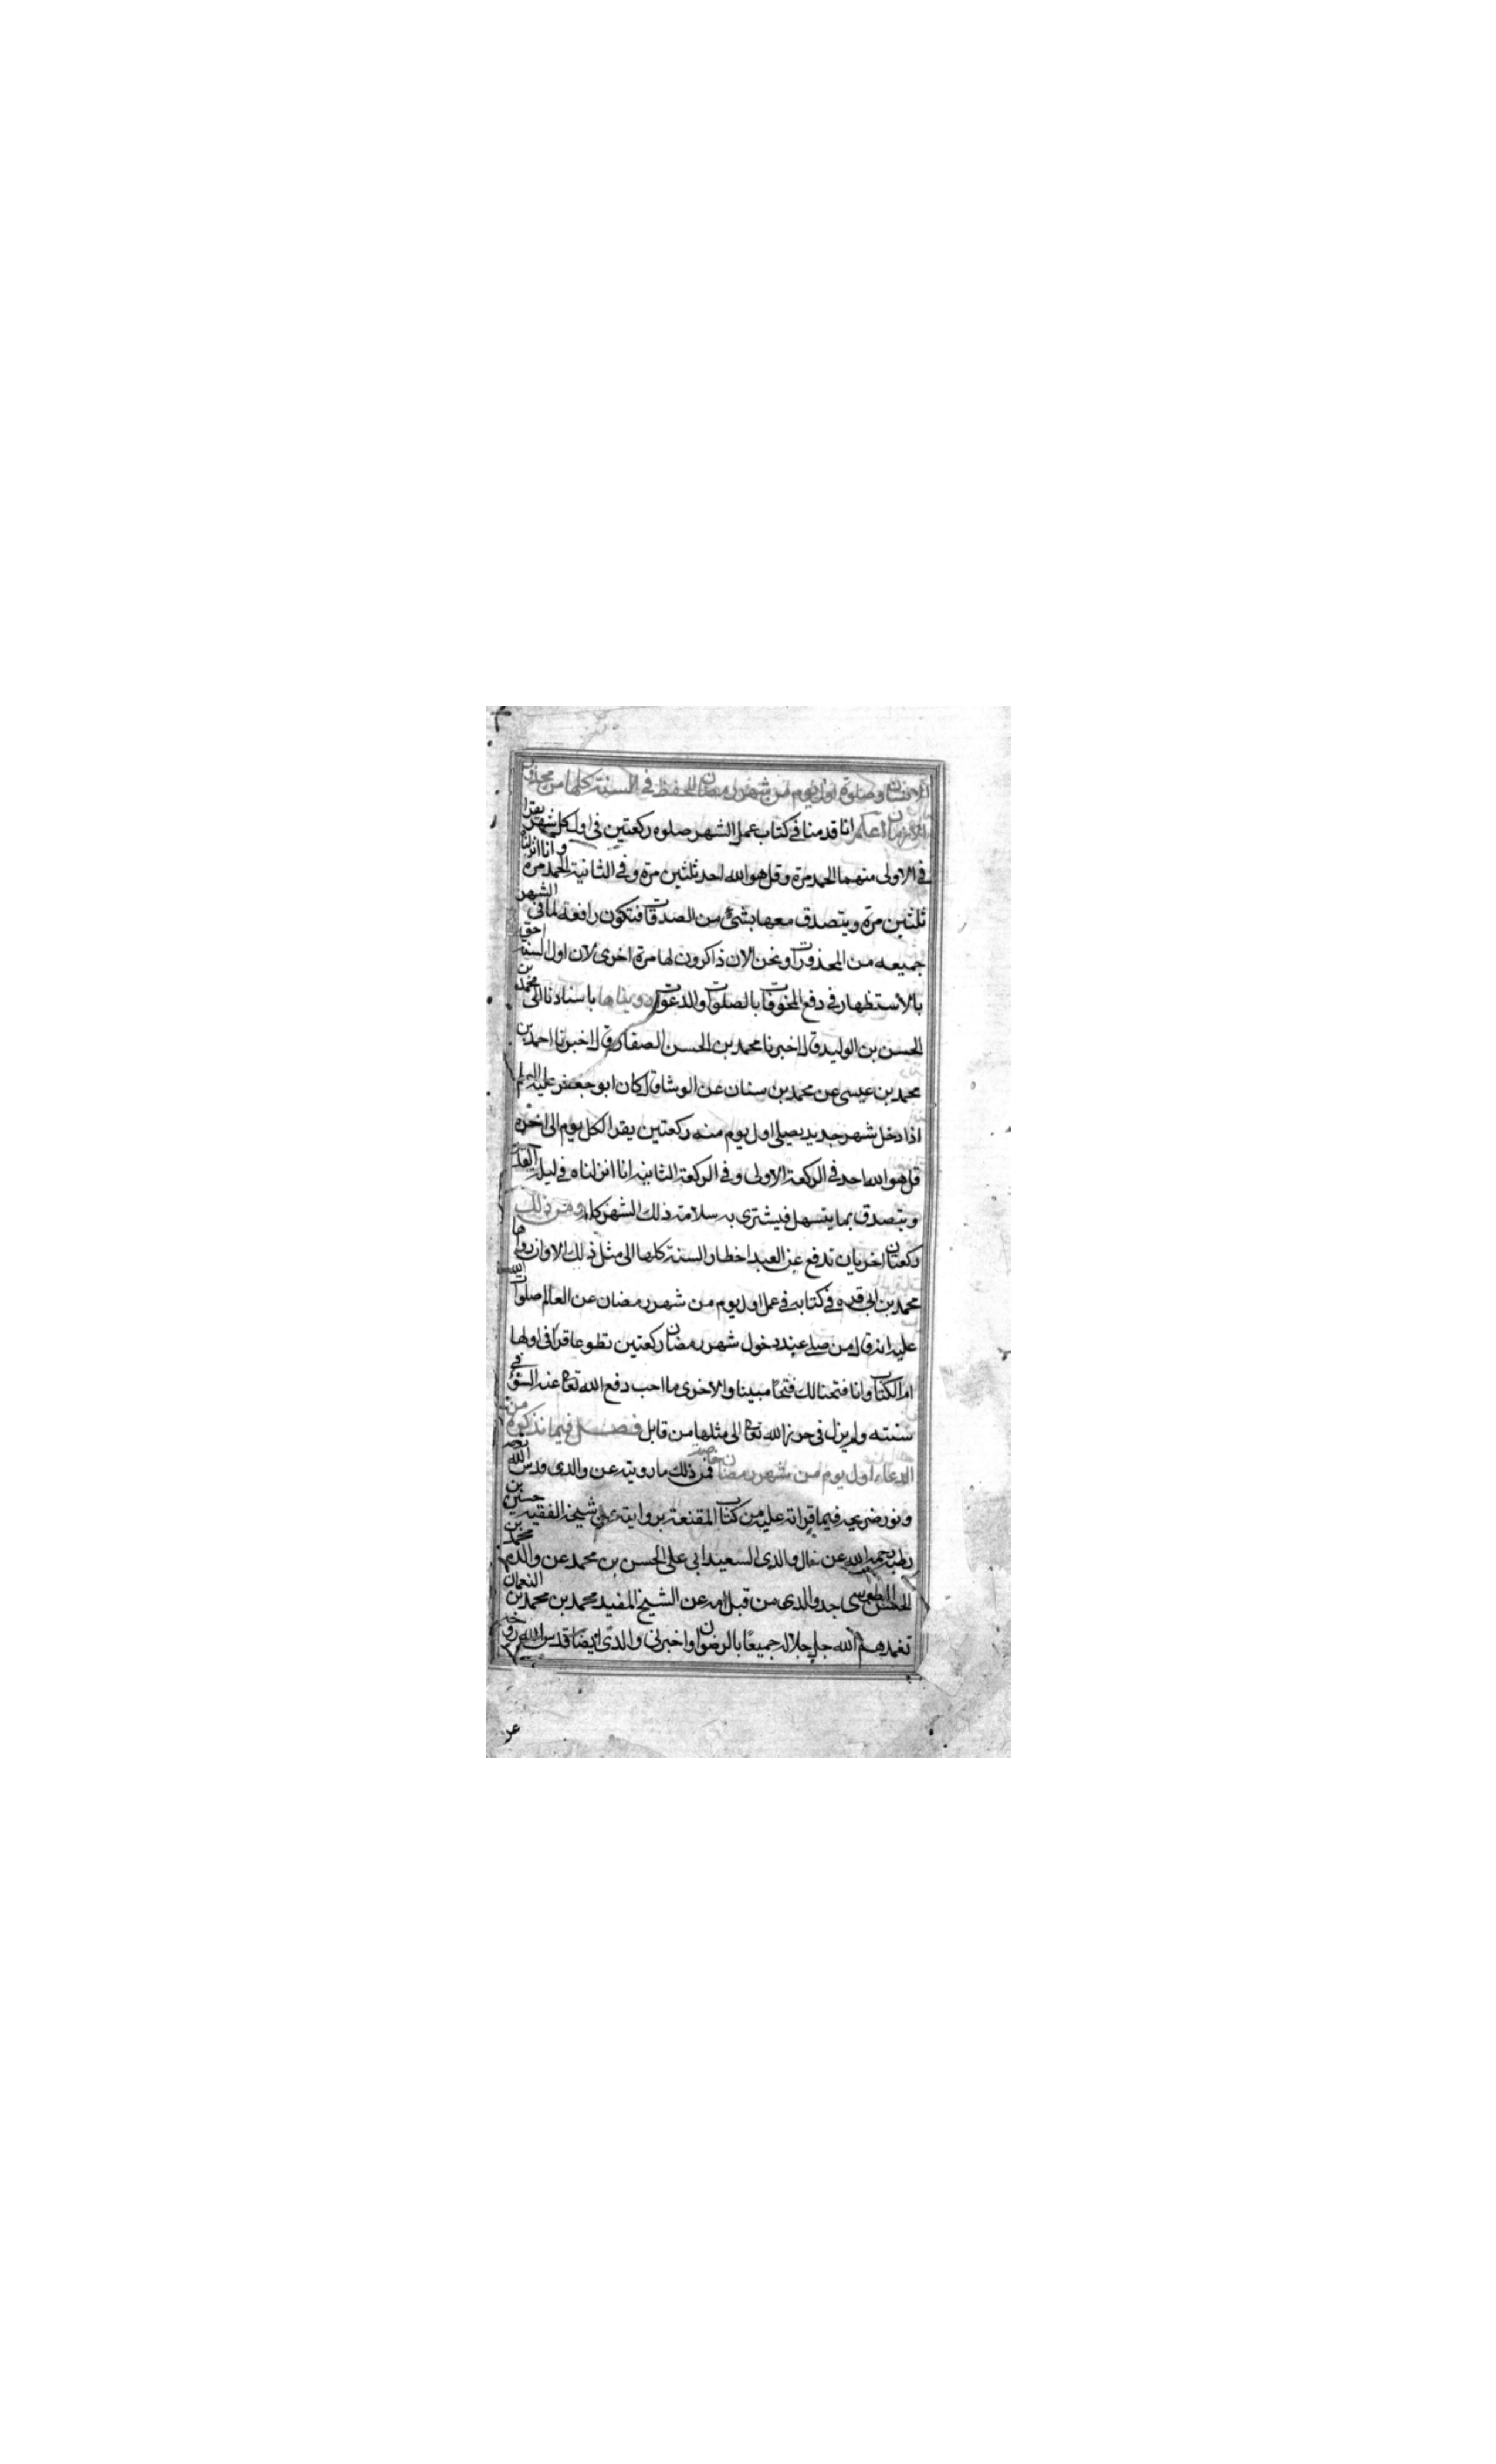 الانسان وصلوة اول يوم من شهر رمضان للحفظ في السنة كلها من محذورات
الازمان اعلم انا قدمنا في كتاب عمل الشهر صلوه ركعتين في اول كل شهر يقرا
في الاولى منهما الحمد مرة وقل هو الله احد ثلثين مرة وفي الثانية الحمد مرة وانا انزلناه
ثلثين مرة ويتصدق معها بشئ من الصدقات فتكون رافعة لما في الشهر
جميعه من المحذورات ونحن الان ذاكرون لها مرة اخرى لان اول السنة احق
بالاستظهار في دفع المخوفات بالصلوات والدعوات رويناها باسنادنا الى محمد بن
الحسن بن الوليد قال اخبرنا محمد بن الحسن الصفار قال اخبرنا احمد بن
محمد بن عيسى عن محمد بن سنان عن الوشا قال كان ابو جعفر عليه السلام
اذا دخل شهر جديد يصلى اول يوم منه ركعتين يقرا لكل يوم الى اخره
قل هو الله احد في الركعة الاولى وفي الركعة الثانيه انا انزلناه في ليلة القدر
ويتصدق بما يتسهل فيشترى به سلامة ذلك الشهر كله ومن ذلك
ركعتان اخريان تدفع عن العبد اخطار السنة كلها الى مثل ذلك الاوان رواها
محمد بن ابي قره في كتابه في عمل اول يوم من شهر رمضان عن العالم صلوات الله
عليه انه قال من صلى عند دخول شهر رمضان ركعتين تطوعا قرا في اولها
ام الكتاب وانا فتحنا لك فتحًا مبينا والاخرى ما احب دفع الله تعا عنه السوء في
سنته ولم يزل في حرز الله تعا الى مثلها من قابل فصل فيما نذكره من
الدعاء اول يوم من شهر رمضان خاصة فمن ذلك ما رويته عن والدى قدس الله
ونور ضريحه فيما قراته عليه من كتاب المقنعة بروايته عن شيخه الفقيه حسين بن
رطبه رحمه الله عن خال والدى السعيد ابى على الحسن بن محمد عن والده محمد بن
الحسن الطوسى جد والدى من قبل امه عن الشيخ المفيد محمد بن محمد بن النعمان
تغمدهم الله جل جلاله جميعًا بالرضوان واخبرنى والدى ايضًا قدس الله روحه